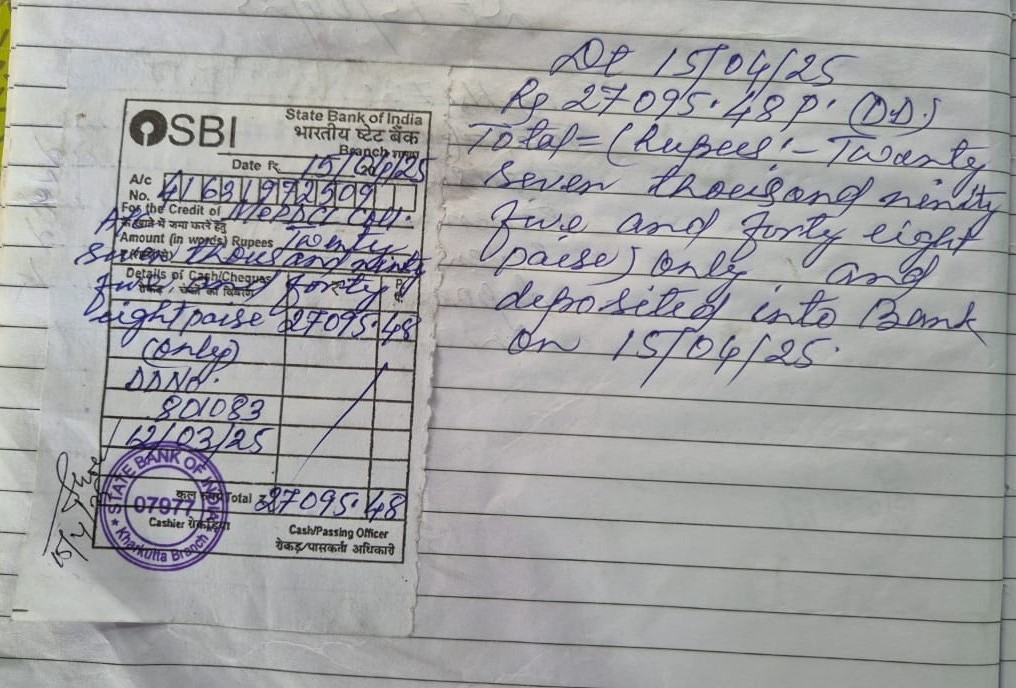 SBI
State Bank of India
भारतीय स्टेट बैंक
Branch शाखा
Date दि. 15/04/25
A/c No. 41631972509
For the Credit of MePDCL Coll.
के खाते में जमा करने हेतु
Amount (in words) Rupees Twenty
Seven thousand ninty
Details of Cash/Cheques
five and forty
eight paise 27095.48
(only)
DDNo.
801083
12/03/25
कुल Total ₹ 27095.48
STATE BANK OF INDIA
07977
Kharkutta Branch
Cashier रोकड़िया
Cash/Passing Officer
रोकड़/पासकर्ता अधिकारी
15/4
Dt 15/04/25
Rs 27095.48P. (DD.)
Total = (Rupees :- Twanty
Seven thousand ninty
five and forty eight
paise) only and
deposited into Bank
on 15/04/25.